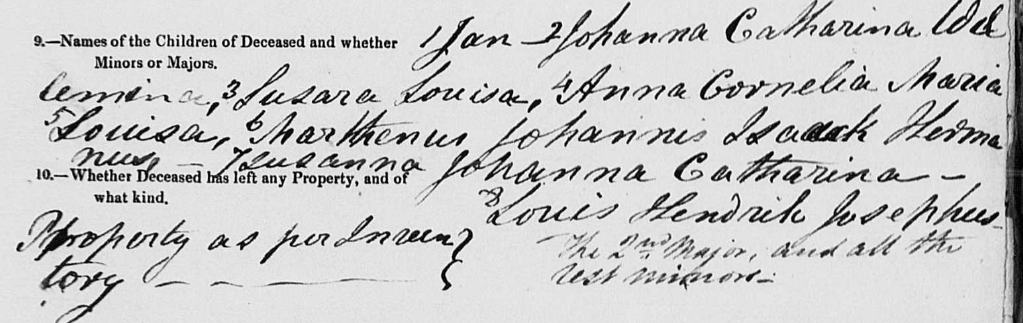 9.—Names of the Children of Deceased and whether
Minors or Majors.
1 Jan - 2 Johanna Catharina Wil
lemina, 3 Susara Louisa, 4 Anna Cornelia Maria
5 Louisa, 6 Marthenus Johannis Isaack Herma
nus - 7 Susanna Johanna Catharina -
10.—Whether Deceased has left any Property, and of
what kind.
8 Louis Hendrik Josephus
Property as per Inven
tory
The 2nd Major, and all the
rest minors -